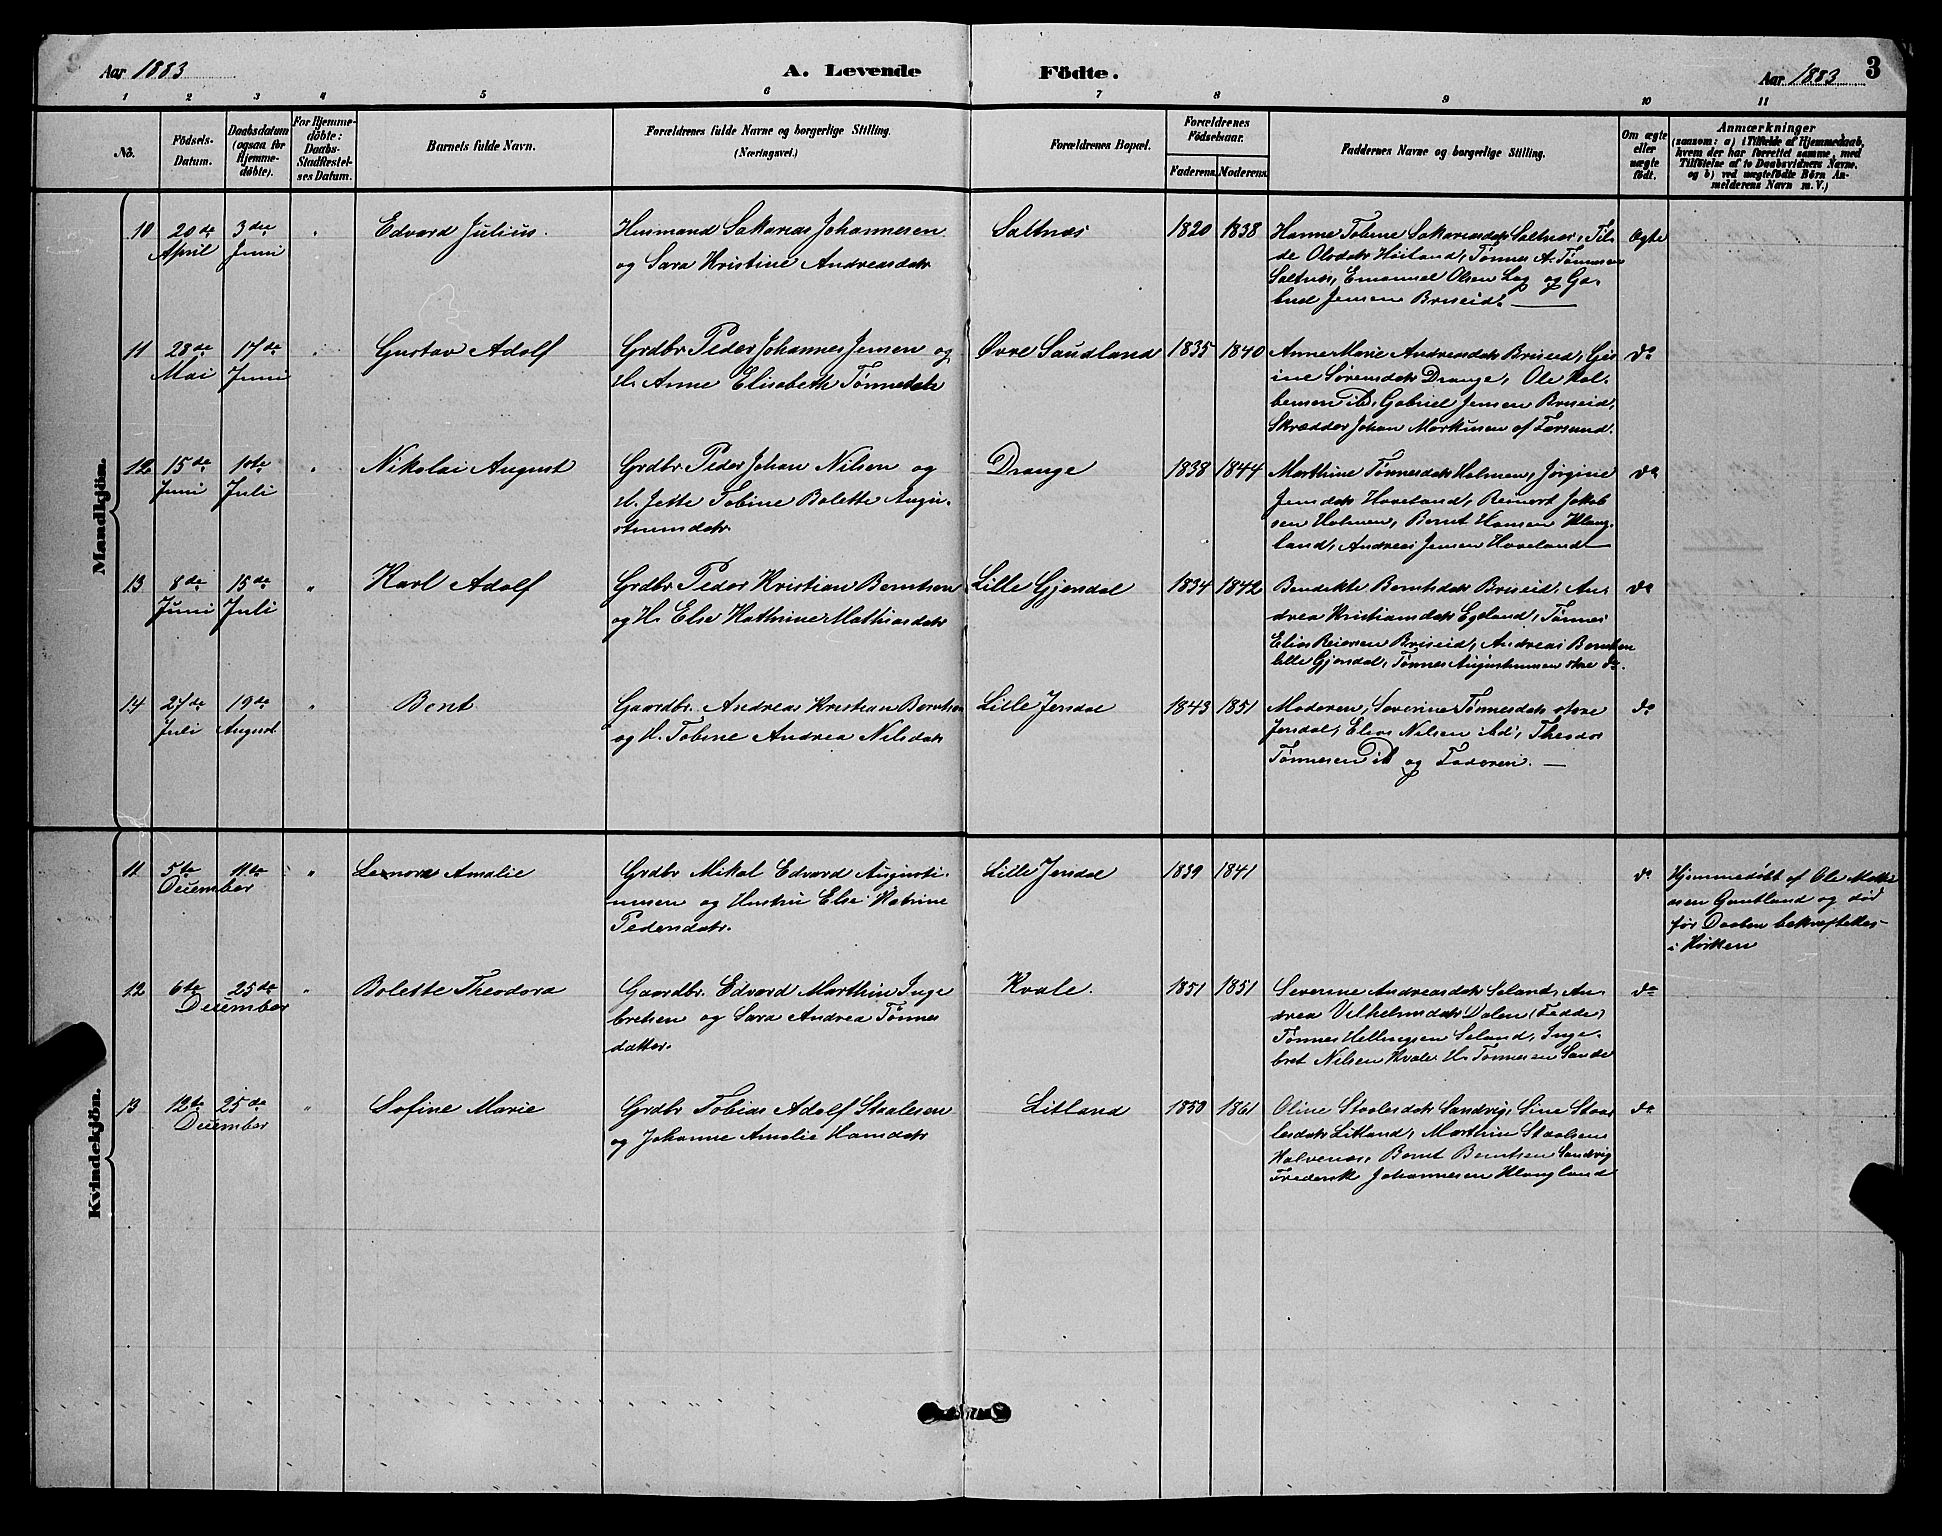 Aar 1883
A. Levende Födte.
Aar 1883
3
1 2 3 4 5 6 7 8 9 10 11
No.
Födsels-
Datum.
Daabsdatum
(ogsaa for
Hjemme-
döbte).
For Hjemme-
döbte:
Daabs-
Stadfæstel-
ses Datum.
Barnets fulde Navn.
Forældrenes fulde Navne og borgerlige Stilling.
(Næringsvei.)
Forældrenes Bopæl.
Forældrenes
Födselsaar.
Faderens. Moderens.
Faddernes Navne og borgerlige Stilling.
Om ægte
eller
uægte
födt.
Anmærkninger
(saasom: a) i Tilfælde af Hjemmedaab,
hvem der har forrettet samme, med
Tilföielse af to Daabsvidners Navne,
og b) ved uægtefödte Börn An-
melderens Navn m. V.)
Mandkjön.
10
20de
April
3die
Juni
"
Edvard Julius.
Husmand Sakarias Johannesen
og Sara Kristine Andreasdatr
Saltnæs
1820 1838
Hanne Tobine Sakariasdatr Saltnæs, Til-
de Olsdatr Høiland, Tønnes A. Tønnesen
Saltnæs, Emanuel Olsen Log og Ga-
briel Jensen Briseid.
Ægte
11
28de
Mai
17de
Juni
"
Gustav Adolf
Grdbr Peder Johannes Jensen og
H. Anne Elisabeth Tønnesdatr
Øvre Saudland
1835 1840
Anne Marie Andreasdatr Briseid, Gis
ine Sørensdatr Drange, Ole Kol-
bensen ibd, Gabriel Jensen Briseid,
Skrædder Johan Markusen af Farsund.
do
12
15de
Juni
10de
Juli
"
Nikolai August
Grdbr Peder Johan Nilsen og
H. Jette Tobine Bolette Augu-
stinusdatr
Drange
1838 1844
Marthine Tønnesdatr Holmen, Jørgine
Jensdatr Hoveland, Reinert Jakob
sen Holmen, Bernt Hansen Klung-
land, Andreas Jensen Hoveland
do
13
8de
Juni
15de
Juli
"
Karl Adolf
Grdbr Peder Kristian Berntsen
og H. Else Kathrine Mathiasdatr
Lille Gjendal
1834 1842
Bendikte Berntsdatr Briseid, An-
drea Kristiansdatr Egeland, Tønnes
Elias Reiersen Briseid, Andreas Berntsen
lille Gjendal, Tønnes Augustinusen store do.
do
14
27de
Juli
19de
August
"
Bent
Gaardbr. Andreas Kristian Berntsen
og H. Tobine Andrea Nilsdatr
Lille Jendal
1843 1851
Moderen, Severine Tønnesdatr store
Jendal, Elias Nilsen ibd, Theodor
Tønnesen ibd og Faderen.
do
Kvindekjön.
11
5te
11te
December
"
Lenora Amalie
Grdbr Mikal Edvard Augusti-
nusen og Hustru Else Katrine
Pedersdatr.
Lille Jendal
1839 1841
do
Hjemmedøbt af Ole Mathi
asen Gautland og død
før Daaben bekræftedes
i Kirken
12
6te
25de
December
"
Bolette Theodora
Gaardbr. Edvard Marthin Inge
bretsen og Sara Andrea Tønnes
datter.
Kvale.
1851 1851
Severine Andreasdatr Seland, An-
drea Vilhelmsdatr Dalen (Fedde)
Tønnes Hellingsen Seland, Inge-
bret Nilsen Kvale H. Tønnesen Sande
do
13
12te
25de
December
"
Sofine Marie
Grdbr Tobias Adolf Staalesen
og Johanne Amalie Hansdatr
Litland
1850 1861
Oline Staalesdatr Sandvig, Sine Staa
lesdatr Litland, Marthin Staalsen
Halvenæs, Bernt Berntsen Sandvig
Frederik Johannesen Klungland
do